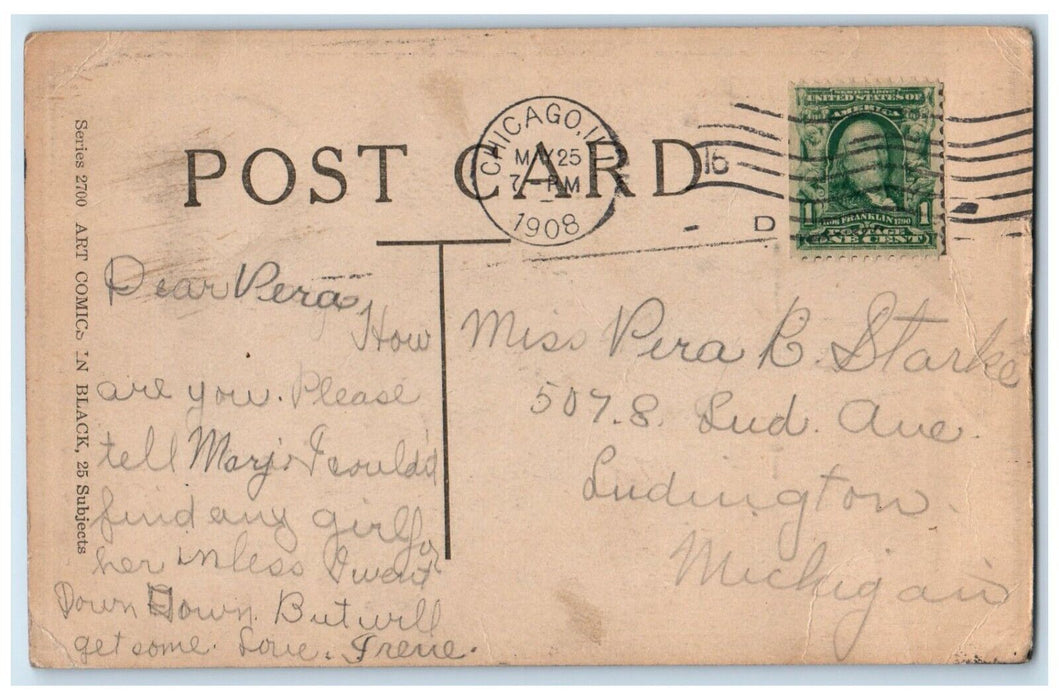 POST CARD
CHICAGO, ILL.
MAY 25
7 - PM
1908
16
D
SERIES 1902
UNITED STATES OF
AMERICA
1 FRANKLIN 1790 1
POSTAGE
ONE CENT
Series 2700 ART COMICS IN BLACK, 25 Subjects
Dear Vera,
How
are you. Please
tell Marj. I couldn't
find any girl for
her unless I went
Down Down. But will
get some. Love. Irene.
Miss Vera B. Starke
507. S. Lud. Ave.
Ludington.
Michigan